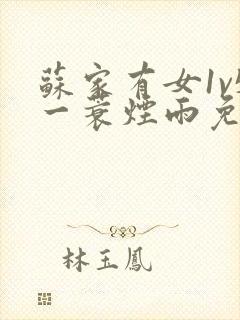 蘇家有女1v
一蓑煙雨免
林玉鳳